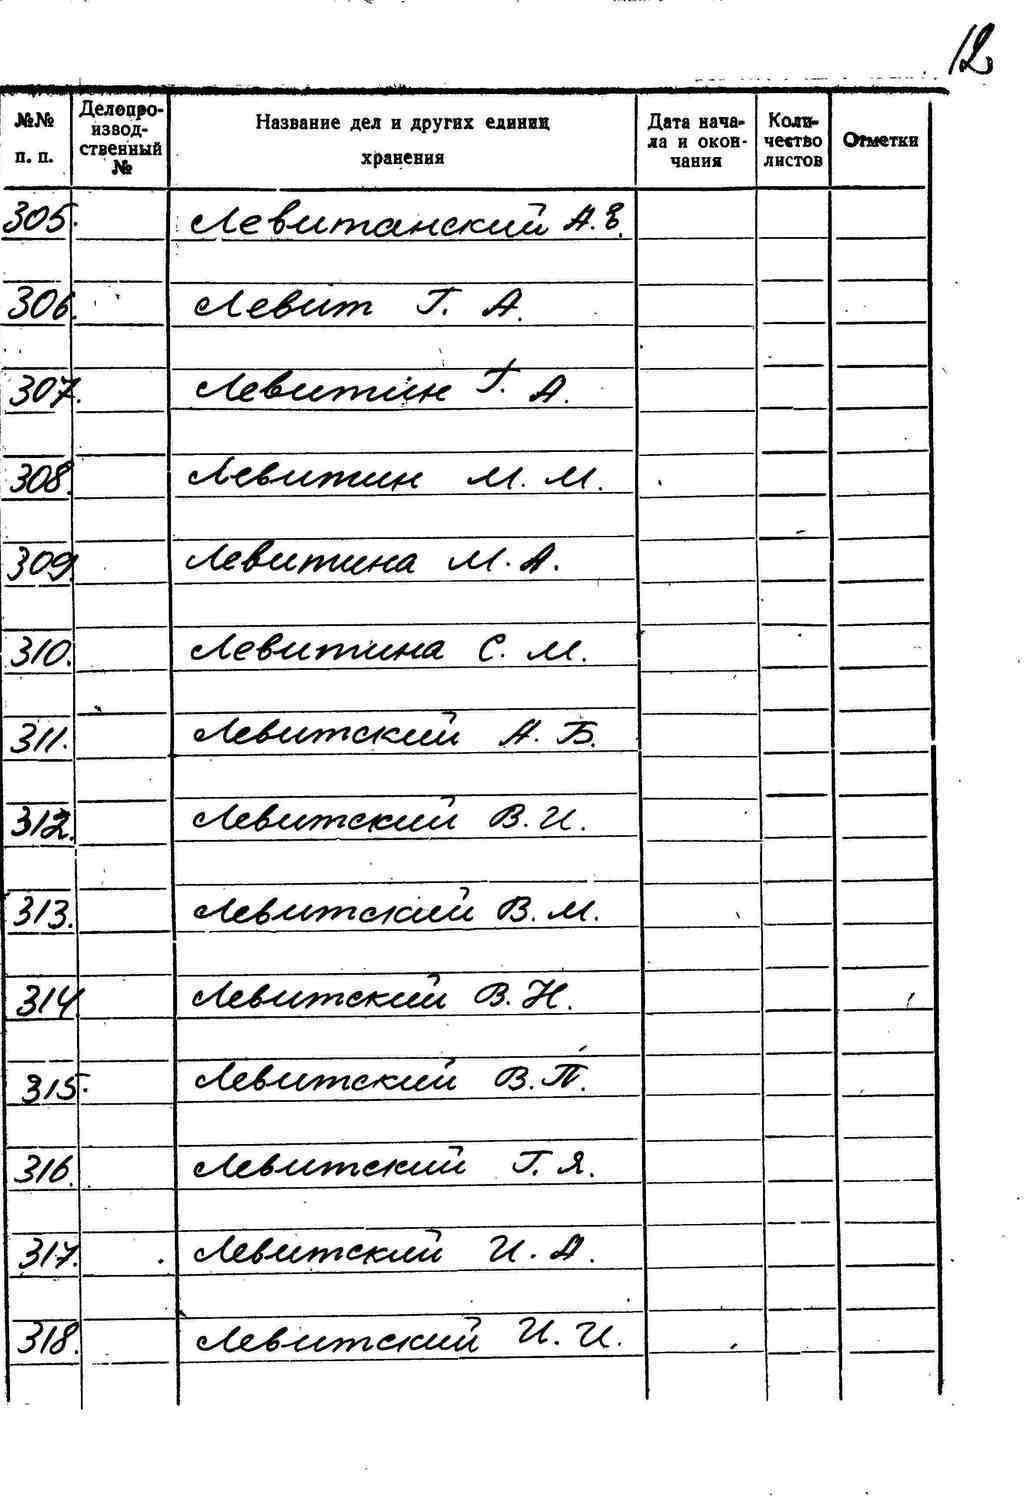 12
№№ п. п. Делопроизвод-ственный № Название дел и других единиц хранения Дата нача-ла и окон-чания Коли-чество листов Отметки
305. Левитанский А.Е.
306. Левит Г. А.
307. Левитин Г. А.
308. Левитин М. М.
309. Левитина М. А.
310. Левитина С. М.
311. Левитский А. Б.
312. Левитский В. И.
313. Левитский В. М.
314. Левитский В. Н.
315. Левитский В. П.
316. Левитский Г. Я.
317. Левитский И. А.
318. Левитский И. И.